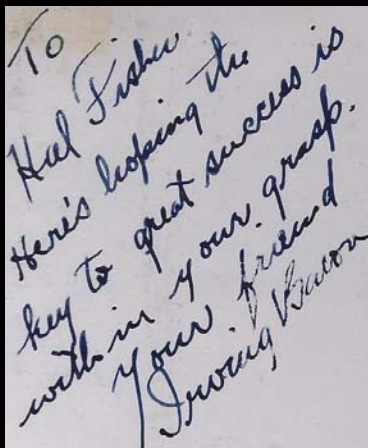 To
Hal Fisher
Here's hoping the
key to great success is
within your grasp.
Your friend
Irving Bacon